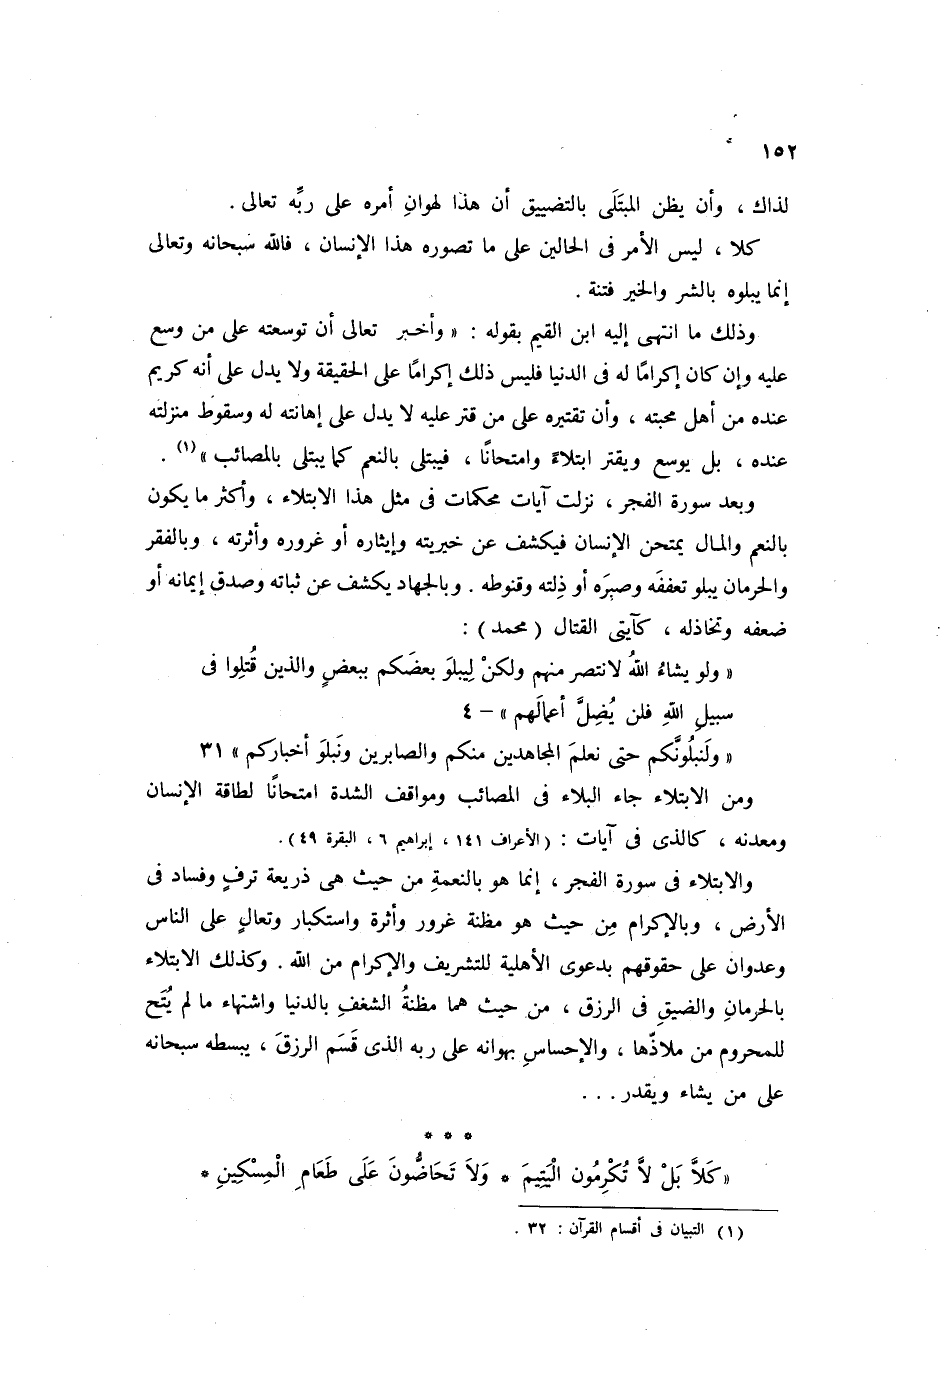 ١٥٢
لذاك ، وأن يظن المبتَلَى بالتضييق أن هذا لهوانِ أمره على ربِّه تعالى .
كلا ، ليس الأمر فى الحالين على ما تصوره هذا الإنسان ، فالله سبحانه وتعالى
إنما يبلوه بالشر والخير فتنة .
وذلك ما انتهى إليه ابن القيم بقوله : « وأخبر تعالى أن توسعته على من وسع
عليه وإن كان إكرامًا له فى الدنيا فليس ذلك إكرامًا على الحقيقة ولا يدل على أنه كريم
عنده من أهل محبته ، وأن تقتيره على من قتر عليه لا يدل على إهانته له وسقوط منزلته
عنده ، بل يوسع ويقتر ابتلاءً وامتحانًا ، فيبتلى بالنعم كما يبتلى بالمصائب »(١) .
وبعد سورة الفجر ، نزلت آيات محكمات فى مثل هذا الابتلاء ، وأكثر ما يكون
بالنعم والمال يمتحن الإنسان فيكشف عن خيريته وإيثاره أو غروره وأثرته ، وبالفقر
والحرمان يبلو تعففَه وصبرَه أو ذِلته وقنوطه . وبالجهاد يكشف عن ثباته وصدق إيمانه أو
ضعفه وتخاذله ، كآيتى القتال ( محمد ) :
« ولو يشاءُ اللهُ لانتصر منهم ولكنْ لِيبلوَ بعضَكم ببعضٍ والذين قُتلوا فى
سبيلِ اللهِ فلن يُضِلَّ أعمالَهم » - ٤
« ولَنبلُونَّكم حتى نعلمَ المجاهدين منكم والصابرين ونَبلوَ أخباركم » ٣١
ومن الابتلاء جاء البلاء فى المصائب ومواقف الشدة امتحانًا لطاقة الإنسان
ومعدنه ، كالذى فى آيات : ( الأعراف ١٤١ ، إبراهيم ٦ ، البقرة ٤٩ ) .
والابتلاء فى سورة الفجر ، إنما هو بالنعمةِ من حيث هى ذريعة ترفٍ وفساد فى
الأرض ، وبالإكرام مِن حيث هو مظنة غرور وأثرة واستكبار وتعالٍ على الناس
وعدوان على حقوقهم بدعوى الأهلية للتشريف والإكرام من الله . وكذلك الابتلاء
بالحرمانِ والضيقِ فى الرزق ، من حيث هما مظنةُ الشغفِ بالدنيا واشتهاء ما لم يُتَح
للمحروم من ملاذّها ، والإحساسِ بهوانه على ربه الذى قَسَم الرزقَ ، يبسطه سبحانه
على من يشاء ويقدر . . .
* * *
« كَلاَّ بَلْ لاَّ تُكْرِمُون الْيَتِيمَ * وَلاَ تَحَاضُّونَ عَلَى طَعَامِ الْمِسْكِينِ *
(١) التبيان فى أقسام القرآن : ٣٢ .